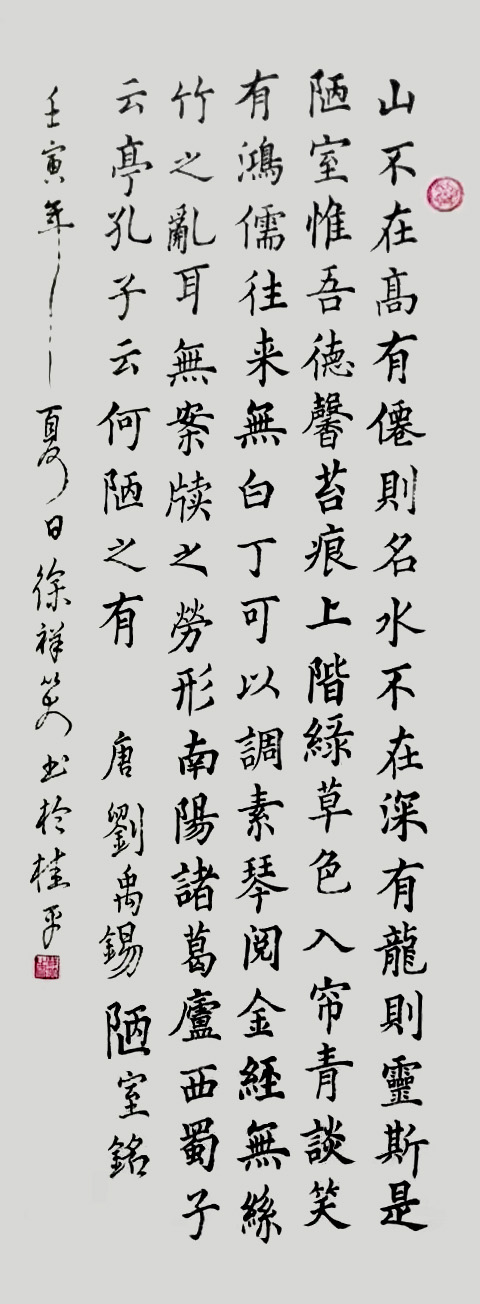 山不在高有僊則名水不在深有龍則靈斯是
陋室惟吾德馨苔痕上階緑草色入帘青談笑
有鴻儒往来無白丁可以調素琴閲金經無絲
竹之亂耳無案牍之勞形南陽諸葛廬西蜀子
云亭孔子云何陋之有 唐劉禹錫陋室銘
壬寅年夏日徐祥笑书於桂平